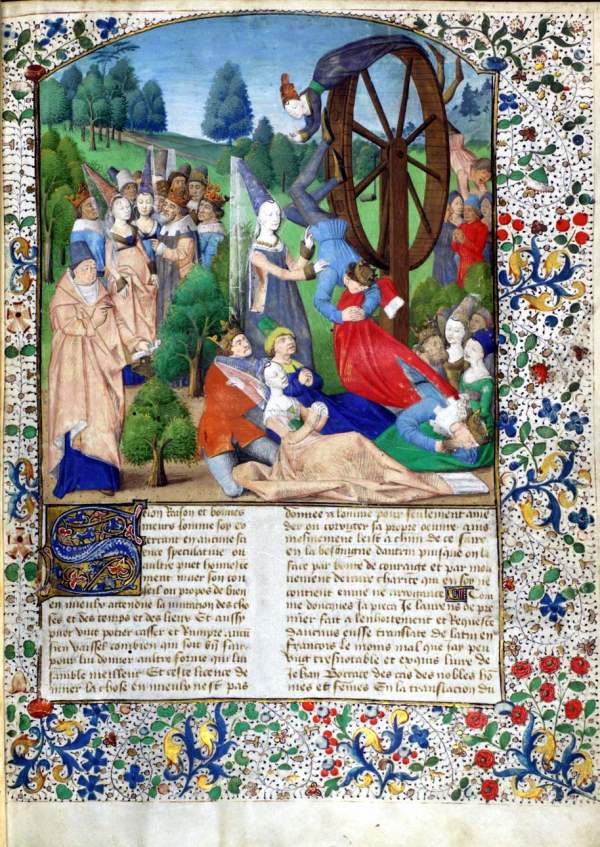 Selon Raison et bonnes
meurs lomme soy ex
ercant en aucune sa
ence speculatiue ou
aultre puet honneste
ment muer son con
seil ou propos de bien
en mieulx attendue la mutation des cho
ses et des temps et des lieux Et aussi
puet vng potier casser et Rompre aucu
sien vaissel combien qui soit bn fait
pour lui donner autre forme qui lui
samble meilleur Et ceste licence de
muer la chose en mieulx nest pas
donnee a lomme pour seulement amē
der ou corriger sa propre oeuure ains
mesmement leist a chūn de ce faire
en la besoigne dautrui pourque on la
face par bonte de courage et par mou
uement de vraie charite qui en soy ne
contient enuie ne arrogance Com
me doncques Ja pieca Je laurens de pre
mier fait a lenhortement et Requeste
daucuns eusse translate de latin en
Francois le moins mal que Jay peu
vng tresnotable et exquis liure de
Jehan Bocace des cas des nobles ho
mes et femes En la translacion du